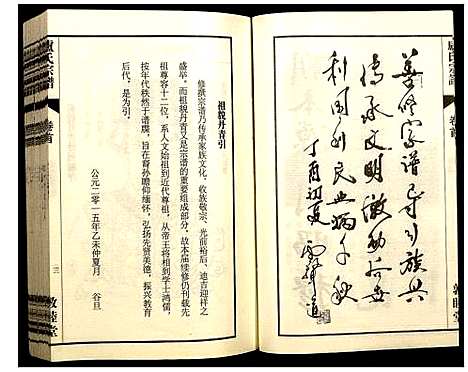 善修宗谱
传承文明激励后世
利国利民典炳千秋
丁酉初夏
卷首
敦睦堂
祖貌丹青引
修撰宗谱乃传承家族文化，收族敬宗、光前裕后、迪吉迎祥之
盛举。而祖貌丹青又是宗谱的重要组成部分，故本届续修仍刊载先
祖尊容十二位，系人文始祖到近代尊祖，从帝王将相到学士鸿儒，
按年代秩然于谱牒，旨在裔孙瞻仰缅怀，弘扬先贤美德，振兴教育
后代。是为引。
公元二零一五年乙未仲夏月　谷旦
卢氏宗谱
卷首
三
敦睦堂